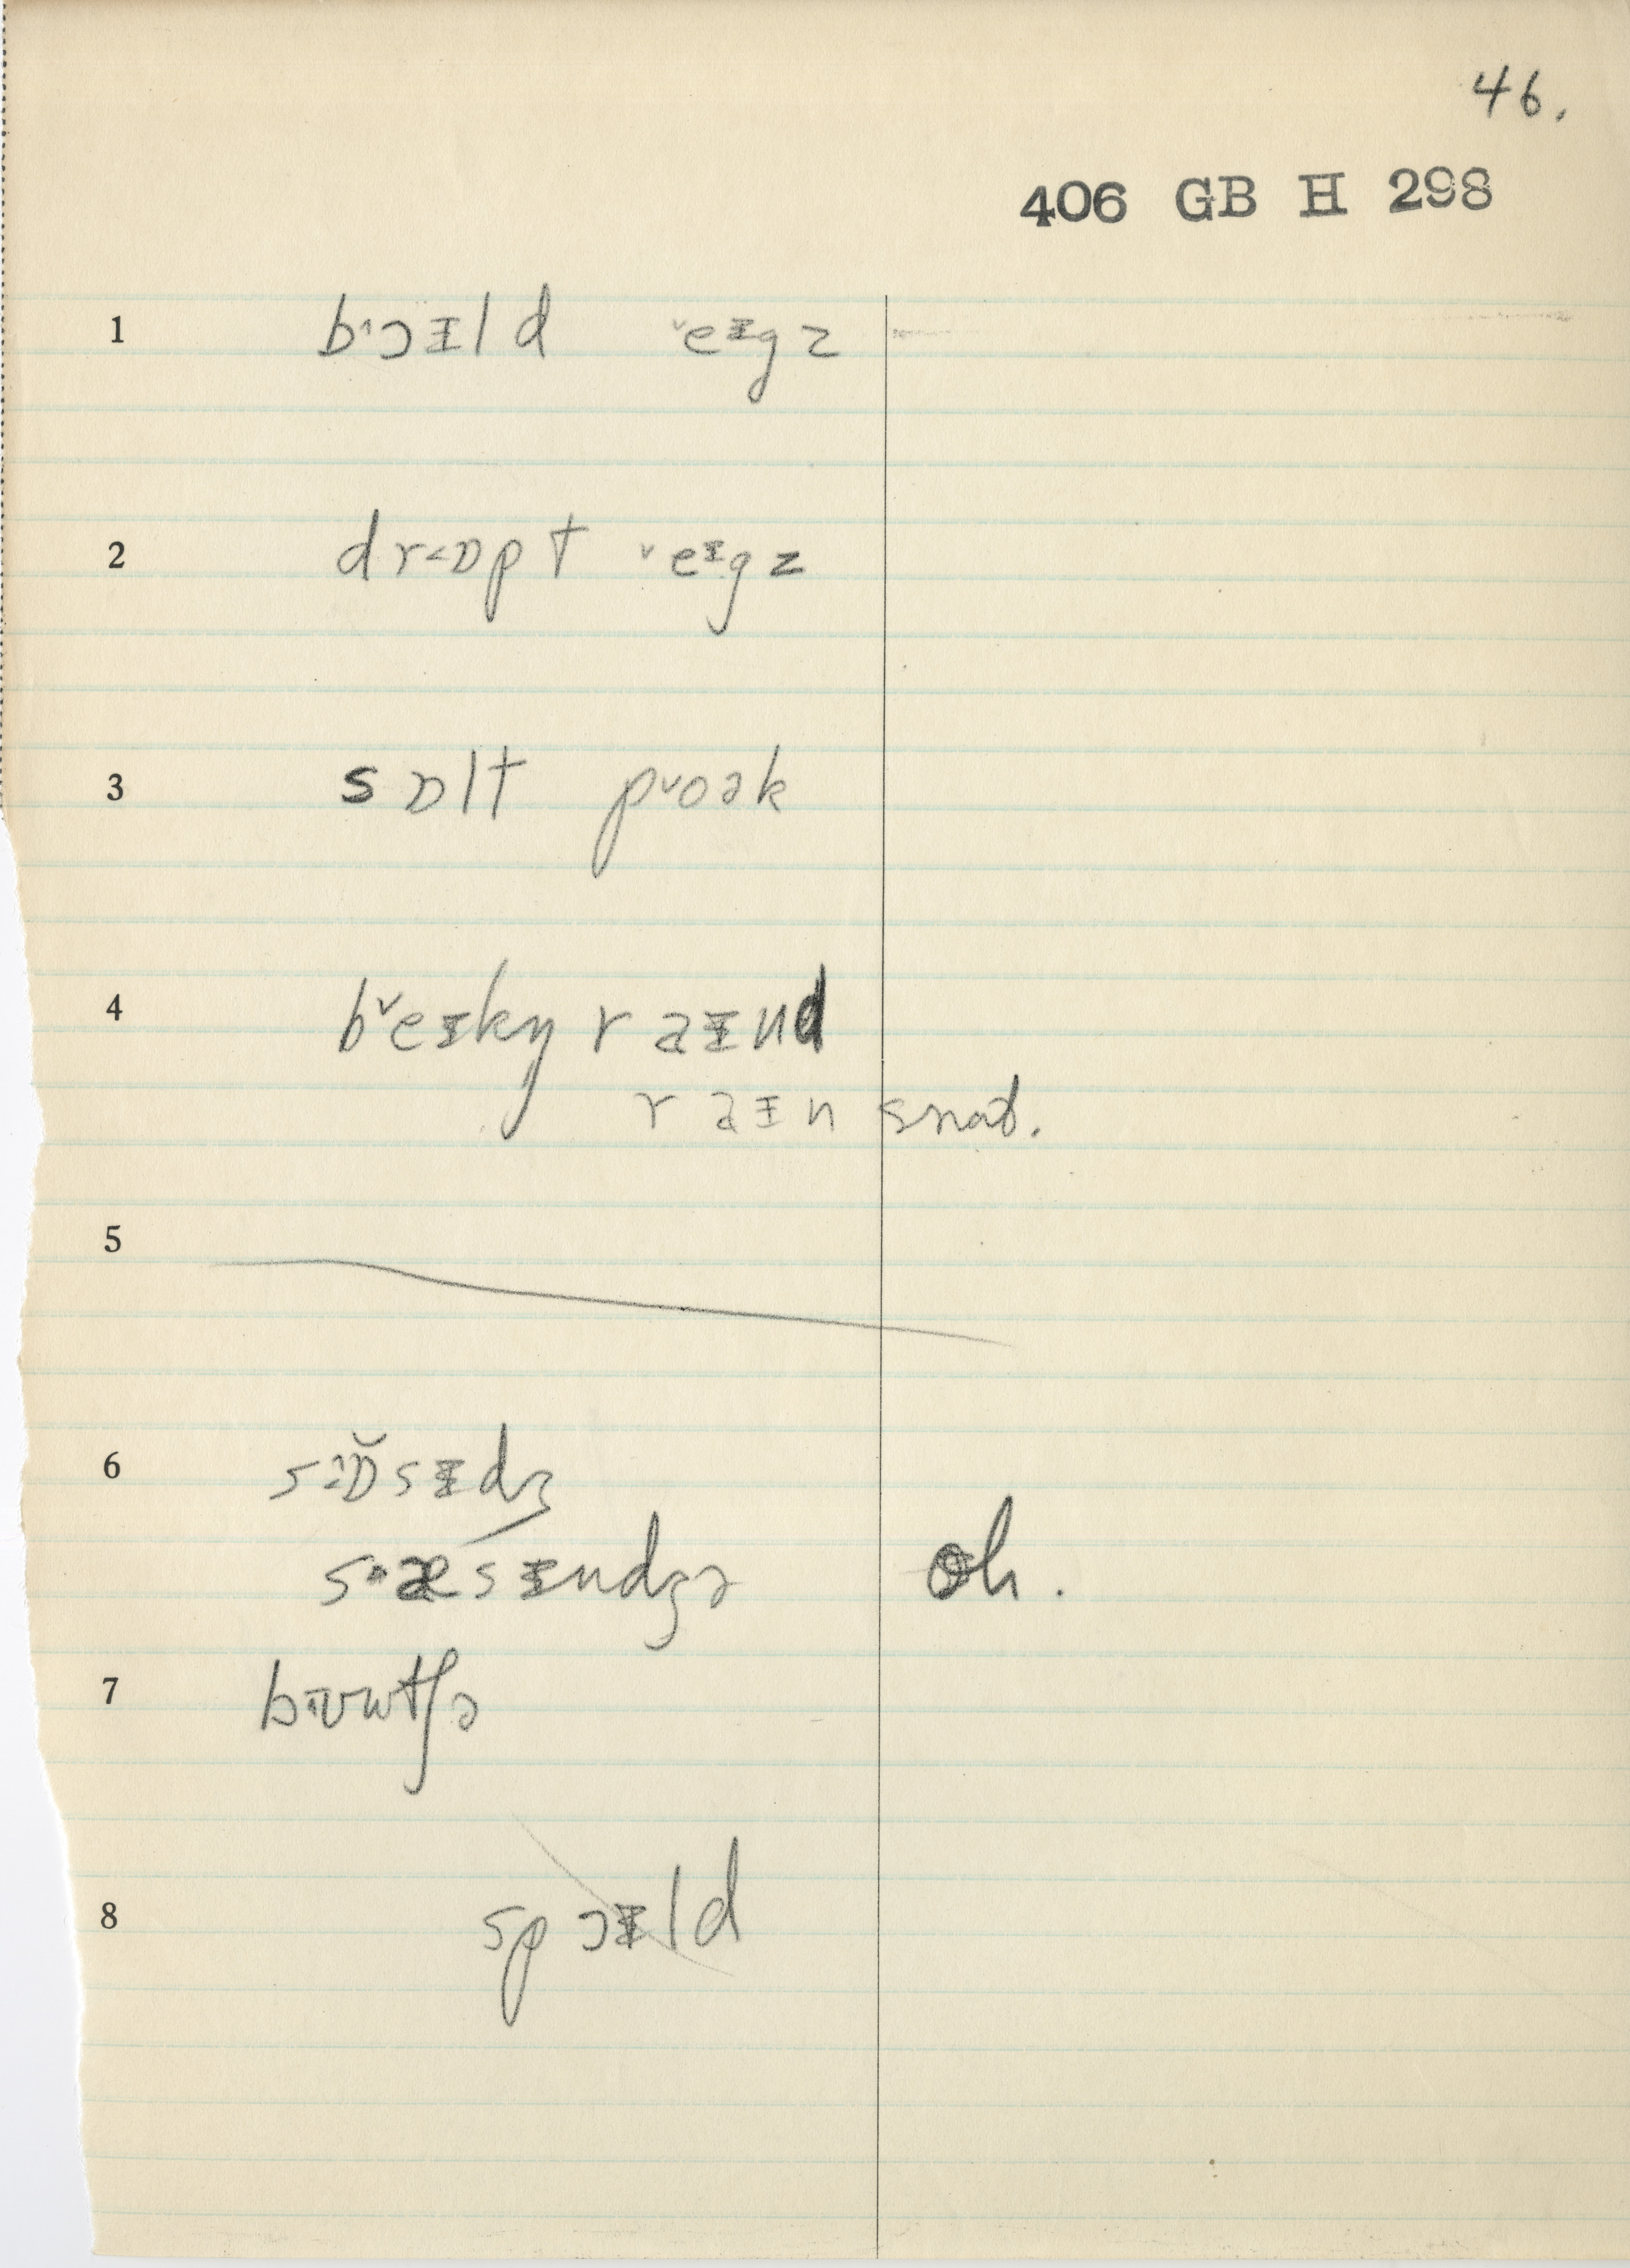 46.
406 GB H 298
1 bˑɔɪld ˇeɪgz
2 dr<ɒpt ˇeɪgz
3 sɒlt pˇoək
4 bˇeɪkŋ raɪnd
raɪn snat.
5
6 s:ɒ̆sɪdʒ
s·æsɪndʒə oh.
7 bɪvwtʃə
8 spɔɪld